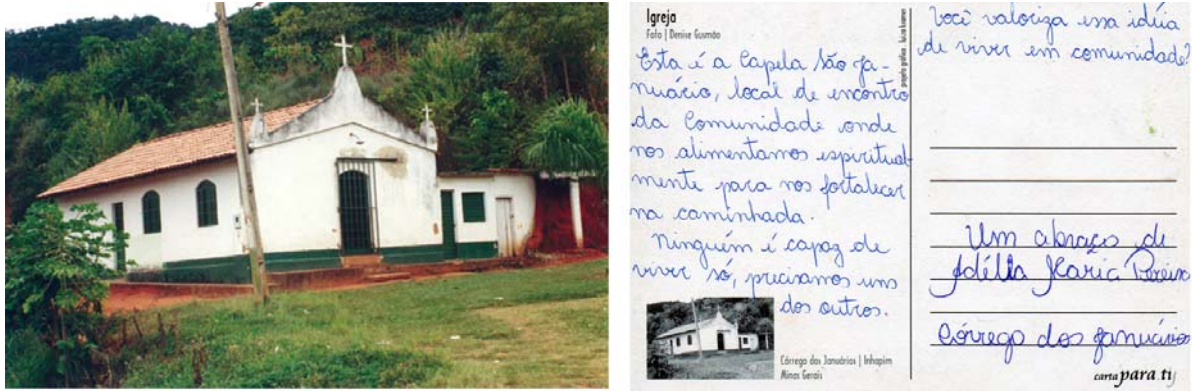 Igreja
Foto | Denise Gusmão
Esta é a Capela São Ja-
nuário, local de encontro
da Comunidade onde
nos alimentamos espiritual-
mente para nos fortalecer
na caminhada.
Ninguém é capaz de
viver só, precisamos uns
dos outros.
Córrego dos Januários | Inhapim
Minas Gerais
projeto gráfico
Você valoriza essa idéia
de viver em comunidade?
Um abraço de
Adélia Maria Pereira
Córrego dos Januários
carta para ti